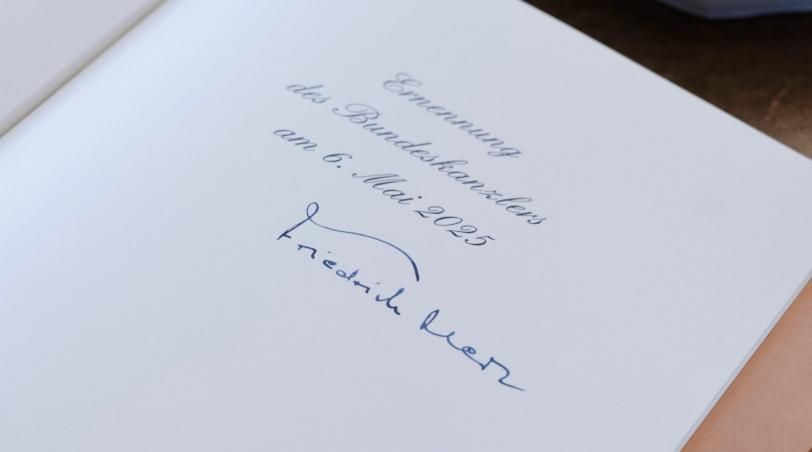 Ernennung
des Bundeskanzlers
am 6. Mai 2025
Friedrich Merz